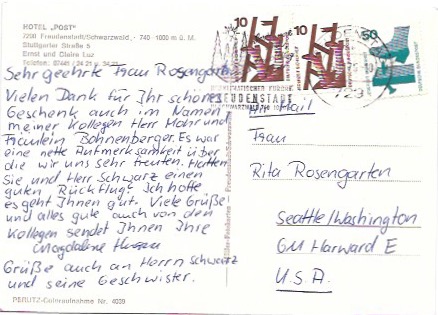 HOTEL „POST"
7290 Freudenstadt/Schwarzwald - 740 - 1000 m ü. M.
Stuttgarter Straße 5
Ernst und Claire Luz
Telefon: 0744
Sehr geehrte Frau Rosengarten
Vielen Dank für Ihr schönes
Geschenk auch im Namen
meiner Kollegen Herr Mohr und
Fräulein Bohnenberger. Es war
eine nette Aufmerksamkeit über
die wir uns sehr freuten. Hatten
Sie und Herr Schwarz einen
guten Rückflug? Ich hoffe
es geht Ihnen gut. Viele Grüße
und alles gute auch von den
Kollegen sendet Ihnen Ihre
Magdalene
Grüße auch an Herrn Schwarz
und seine Geschwister.
PERUTZ-Coloraufnahme Nr. 4039
10
10
50
FREUDENSTADT
729
Air Mail
Frau
Rita Rosengarten
Seattle/Washington
GM Harward E
U.S.A.